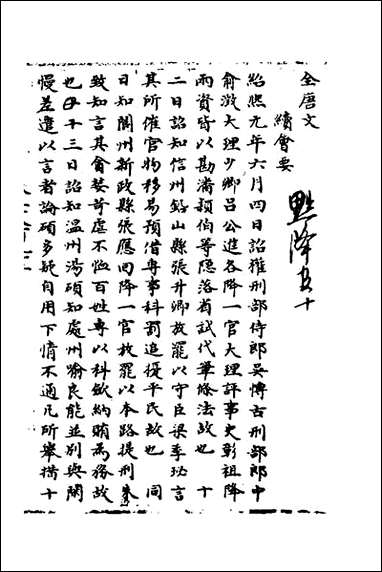 全唐文
續會要
黜降五十
紹熙元年六月四日詔權刑部侍郎吳博古刑部郎中
俞澂大理少卿呂公進各降一官大理評事史彰祖降
兩資皆以勘潘穎伯等隱落省試代筆條法故也 十
二日詔知信州鉛山縣張升卿放罷以守臣梁季珌言
其所催官物移易預借專事科罰追擾平民故也 同
日知閬州新政縣張應回降一官放罷以本路提刑朱
致知言其貪婪苛虐不恤百姓專以科斂納賄為務故
也 十三日詔知溫州湯碩知處州喻良能並別與閑
慢差遣以言者論碩多疑自用下情不通凡所舉措十